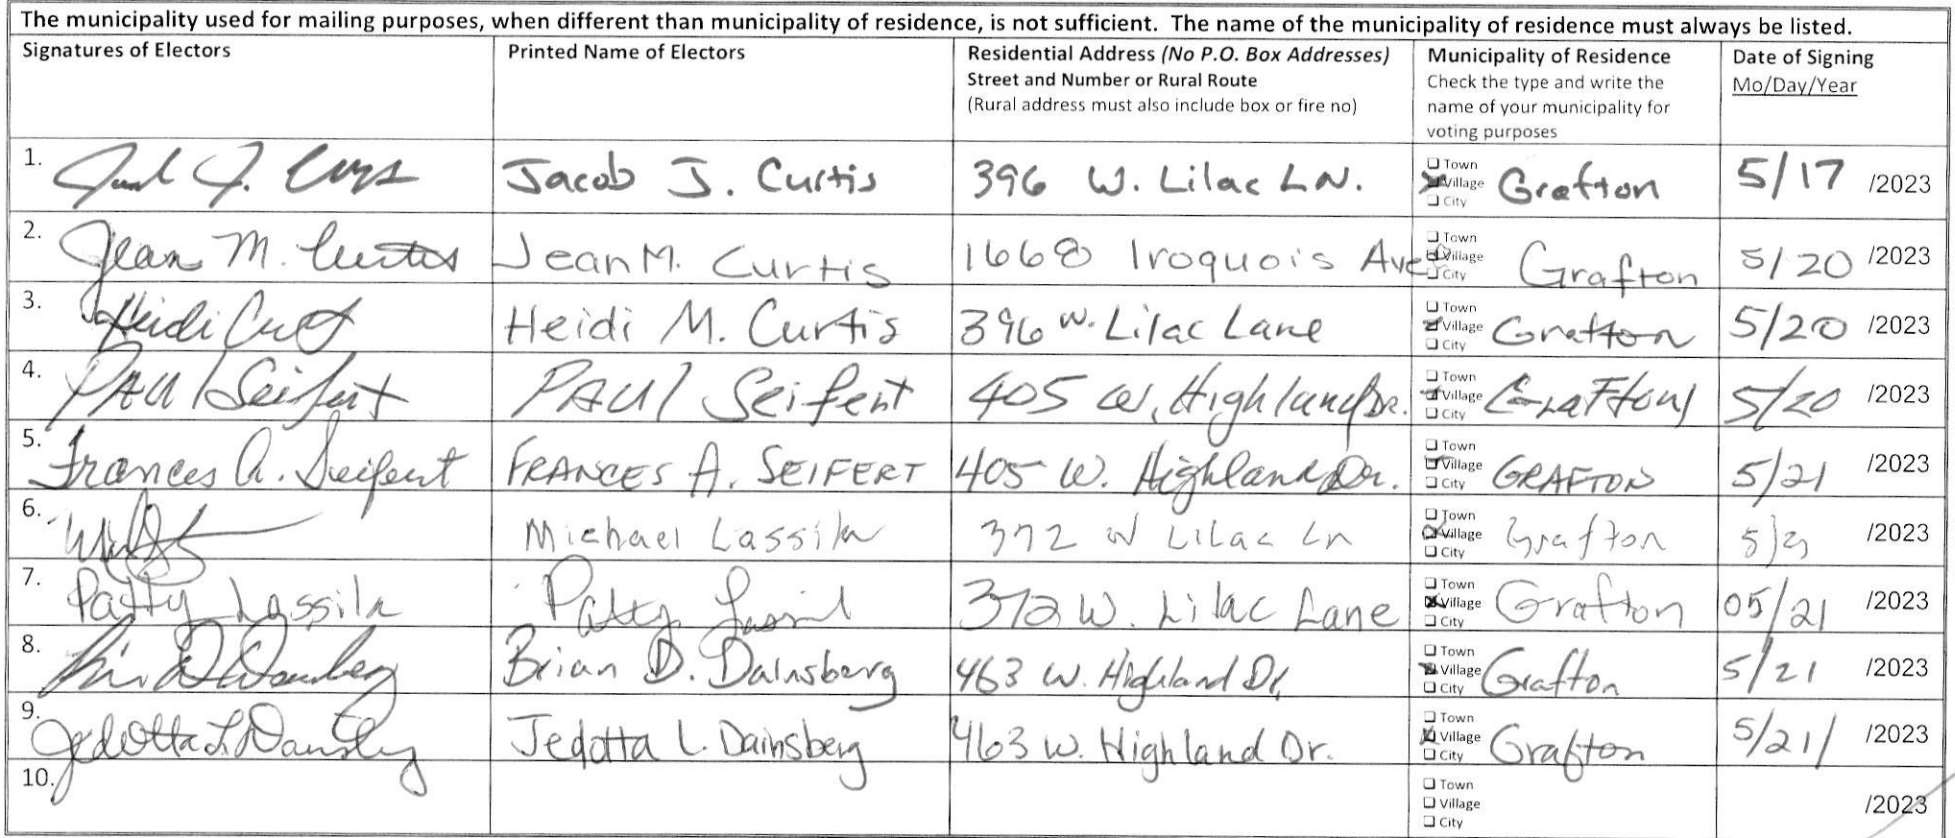 The municipality used for mailing purposes, when different than municipality of residence, is not sufficient. The name of the municipality of residence must always be listed.
Signatures of Electors
Printed Name of Electors
Residential Address (No P.O. Box Addresses)
Street and Number or Rural Route
(Rural address must also include box or fire no)
Municipality of Residence
Check the type and write the
name of your municipality for
voting purposes
Date of Signing
Mo/Day/Year
1. Jacob J. Curtis 396 W. Lilac LN. Town Village City Grafton 5/17 /2023
2. Jean M. Curtis Jean M. Curtis 1668 Iroquois Ave Town Village City Grafton 5/20 /2023
3. Heidi Curtis Heidi M. Curtis 396 W. Lilac Lane Town Village City Grafton 5/20 /2023
4. PAUl Seifert PAUl Seifert 405 W. Highland Dr. Town Village City Grafton 5/20 /2023
5. Frances A. Seifert FRANCES A. SEIFERT 405 W. Highland Dr. Town Village City GRAFTON 5/21 /2023
6. Michael Lassila 372 W Lilac Ln Town Village City Grafton /2023
7. Patty Lassila Patty 372 W. Lilac Lane Town Village City Grafton 05/21 /2023
8. Brian D. Dainsberg 463 W. Highland Dr, Town Village City Grafton 5/21 /2023
9. Jedotta L. Dainsberg Jedotta L. Dainsberg 463 W. Highland Dr. Town Village City Grafton 5/21/ /2023
10. Town Village City /2023